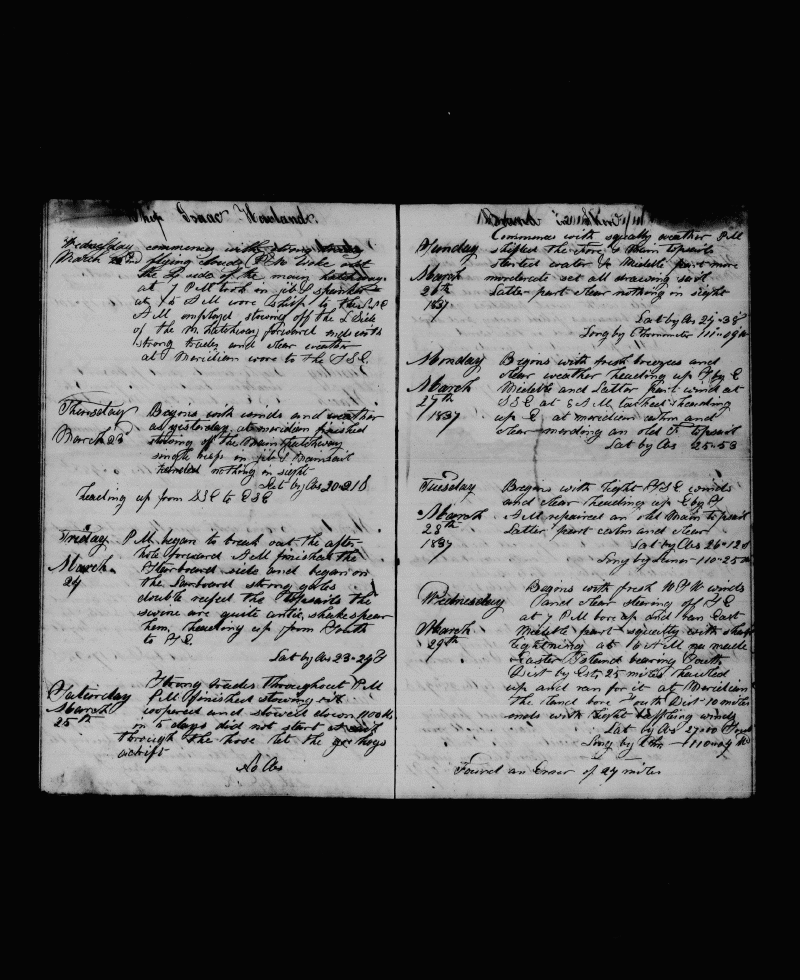 Ship Isaac Howland
Wednesday commences with strong trades
March 22nd flying clouds PM broke out
the side of the main hatchway
at 7 PM took in jib & spanker
at AM wore ship to the
AM employd stowing off the L side
of the M hatchway forward ends with
strong trades and clear weather
at Meridian wore to the SSE
Thursday Begins with winds and weather
as yesterday at meridian finished
March 23 stowing of the Main hatchway
single reefs in jib & Mainsail
handed nothing in sight
Lat by Obs 30-21 S
heading up from SSE to ESE
Friday PM began to break out the after
hole forward AM finished the
March Starboard side and began on
24 the Larboard strong gales
double reefed the topsails the
swine are quite antic, shakespear
them, heading up from South
to SE
Lat by Obs 23-24 S
Saturday Strong trades throughout PM
March PM finished stowing
25th coopered and stowed down
in 5 days did not start
through the hose let the hogs
adrift
No Obs
Bound
Commences with squally weather PM
Sunday shifted the fore & Main topsails
started water Middle part more
March moderate set all drawing sail
26th Latter part clear nothing in sight
1837
Lat by Obs 25-38
Long by Chronometer 111-09
Monday Begins with fresh breezes and
clear weather heading up S by E
March Middle and Latter part wind at
27th SSE at 8 AM tacked heading
1837 up E at meridian calm and
clear mending an old F topsail
Lat by Obs 25-53
Tuesday Begins with light SSE winds
and clear heading up E by S
March AM repaired an old Main topsail
28th Latter part calm and clear
1837 Lat by Obs 26-12 S
Long by Lunar 110-25
Begins with fresh winds
Wednesday and clear steering of SE
at 7 PM bore up and ran East
March Middle part squally with sharp
29th lightning at AM we made
Easter Island bearing South
Dist by Est 25 miles hauled
up and ran for it at Meridian
the land bore South Dist 10 miles
ends with light baffling winds
Lat by Obs 27-00 South
Long by Chr 110-09
Found an Error of 27 miles